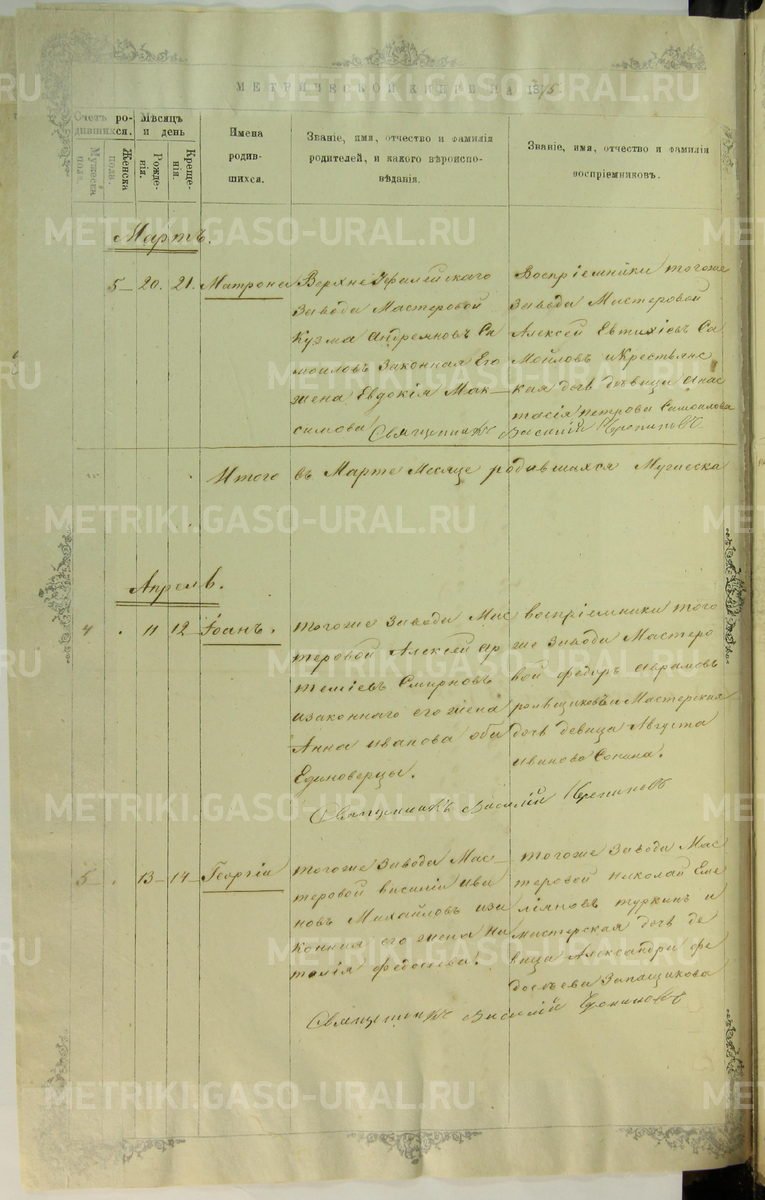 МЕТРИЧЕСКОЙ КНИГИ НА 1875
Счетъ родившихся.
Мужеска пола.
Женска пола.
Мѣсяцъ и день
Рожденія.
Крещенія.
Имена
родив-
шихся.
Званіе, имя, отчество и фамилія
родителей, и какого вѣроиспо-
вѣданія.
Званіе, имя, отчество и фамилія
воспріемниковъ.
Мартъ.
5 20. 21. Матрона
Верхне Уфалейскаго
Завода Мастеровой
Кузма Андреяновъ Са
моиловъ Законная Его
жена Евдокія Мак-
симова
Воспріемники тогоже
Завода Мастеровой
Алексей Евтихіевъ Са
мойловъ и Крестьянс
кая дочь девица Анас
тасія Петрова Самоилова
Священникъ Василій
Итого въ Марте Месяце родившихся Мужеска
Апрель.
4 11 12 Іоанъ.
тогоже Завода Мас
теровой Алексей Ар
темиевъ Смирновъ
изаконнаго его жена
Анна Иванова оба
Единоверцы.
воспріемники того
же Завода Мастеро
вой Федоръ Аврамовъ
и Мастерская
дочь девица Августа
Иванова
Священникъ Василій
5 13 14 Георгіи
тогоже Завода Мас-
теровой Василій Ива
новъ Михайловъ иза
конная его жена На
талія Федосеева.
тогоже Завода Мас
теровой Николай Еме
ліяновъ Туркинъ и
мастерская дочь де
вица Александра Фе
досеева
Священникъ Василій
METRIKI.GASO-URAL.RU